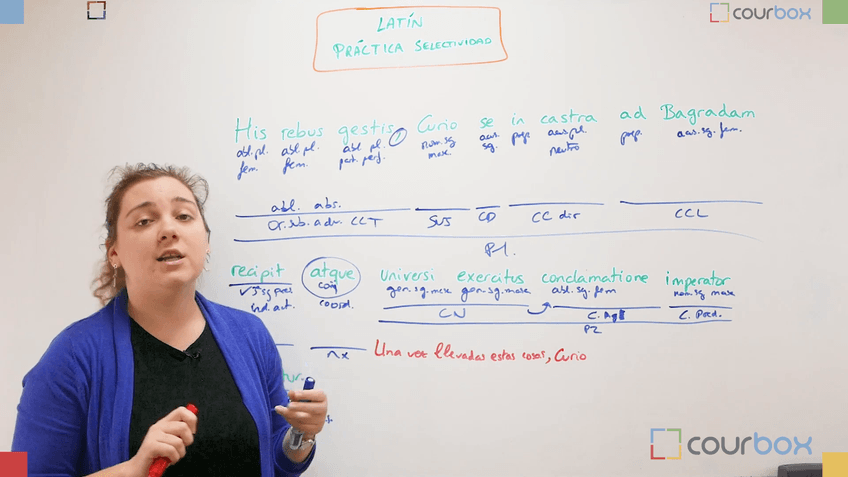 courbox
LATÍN
PRÁCTICA SELECTIVIDAD
His rebus gestis, Curio se in castra ad Bagradam
abl. pl. abl. pl. abl. pl. nom. sg acu. prep. acu. pl. prep. acu. sg. fem.
fem. fem. part. perf. masc. sg. neutro
abl. abs.
Or. sub. adv. CCT SUJ CD CC dir CCL
P1.
recipit atque universi exercitus conclamatione imperator
gen. sg. masc gen. sg. masc. abl. sg. fem nom. sg masc
coord.
CN C. Ag C. Pred.
P2
nx Una vez llevadas estas cosas, Curio
tur.
courbox